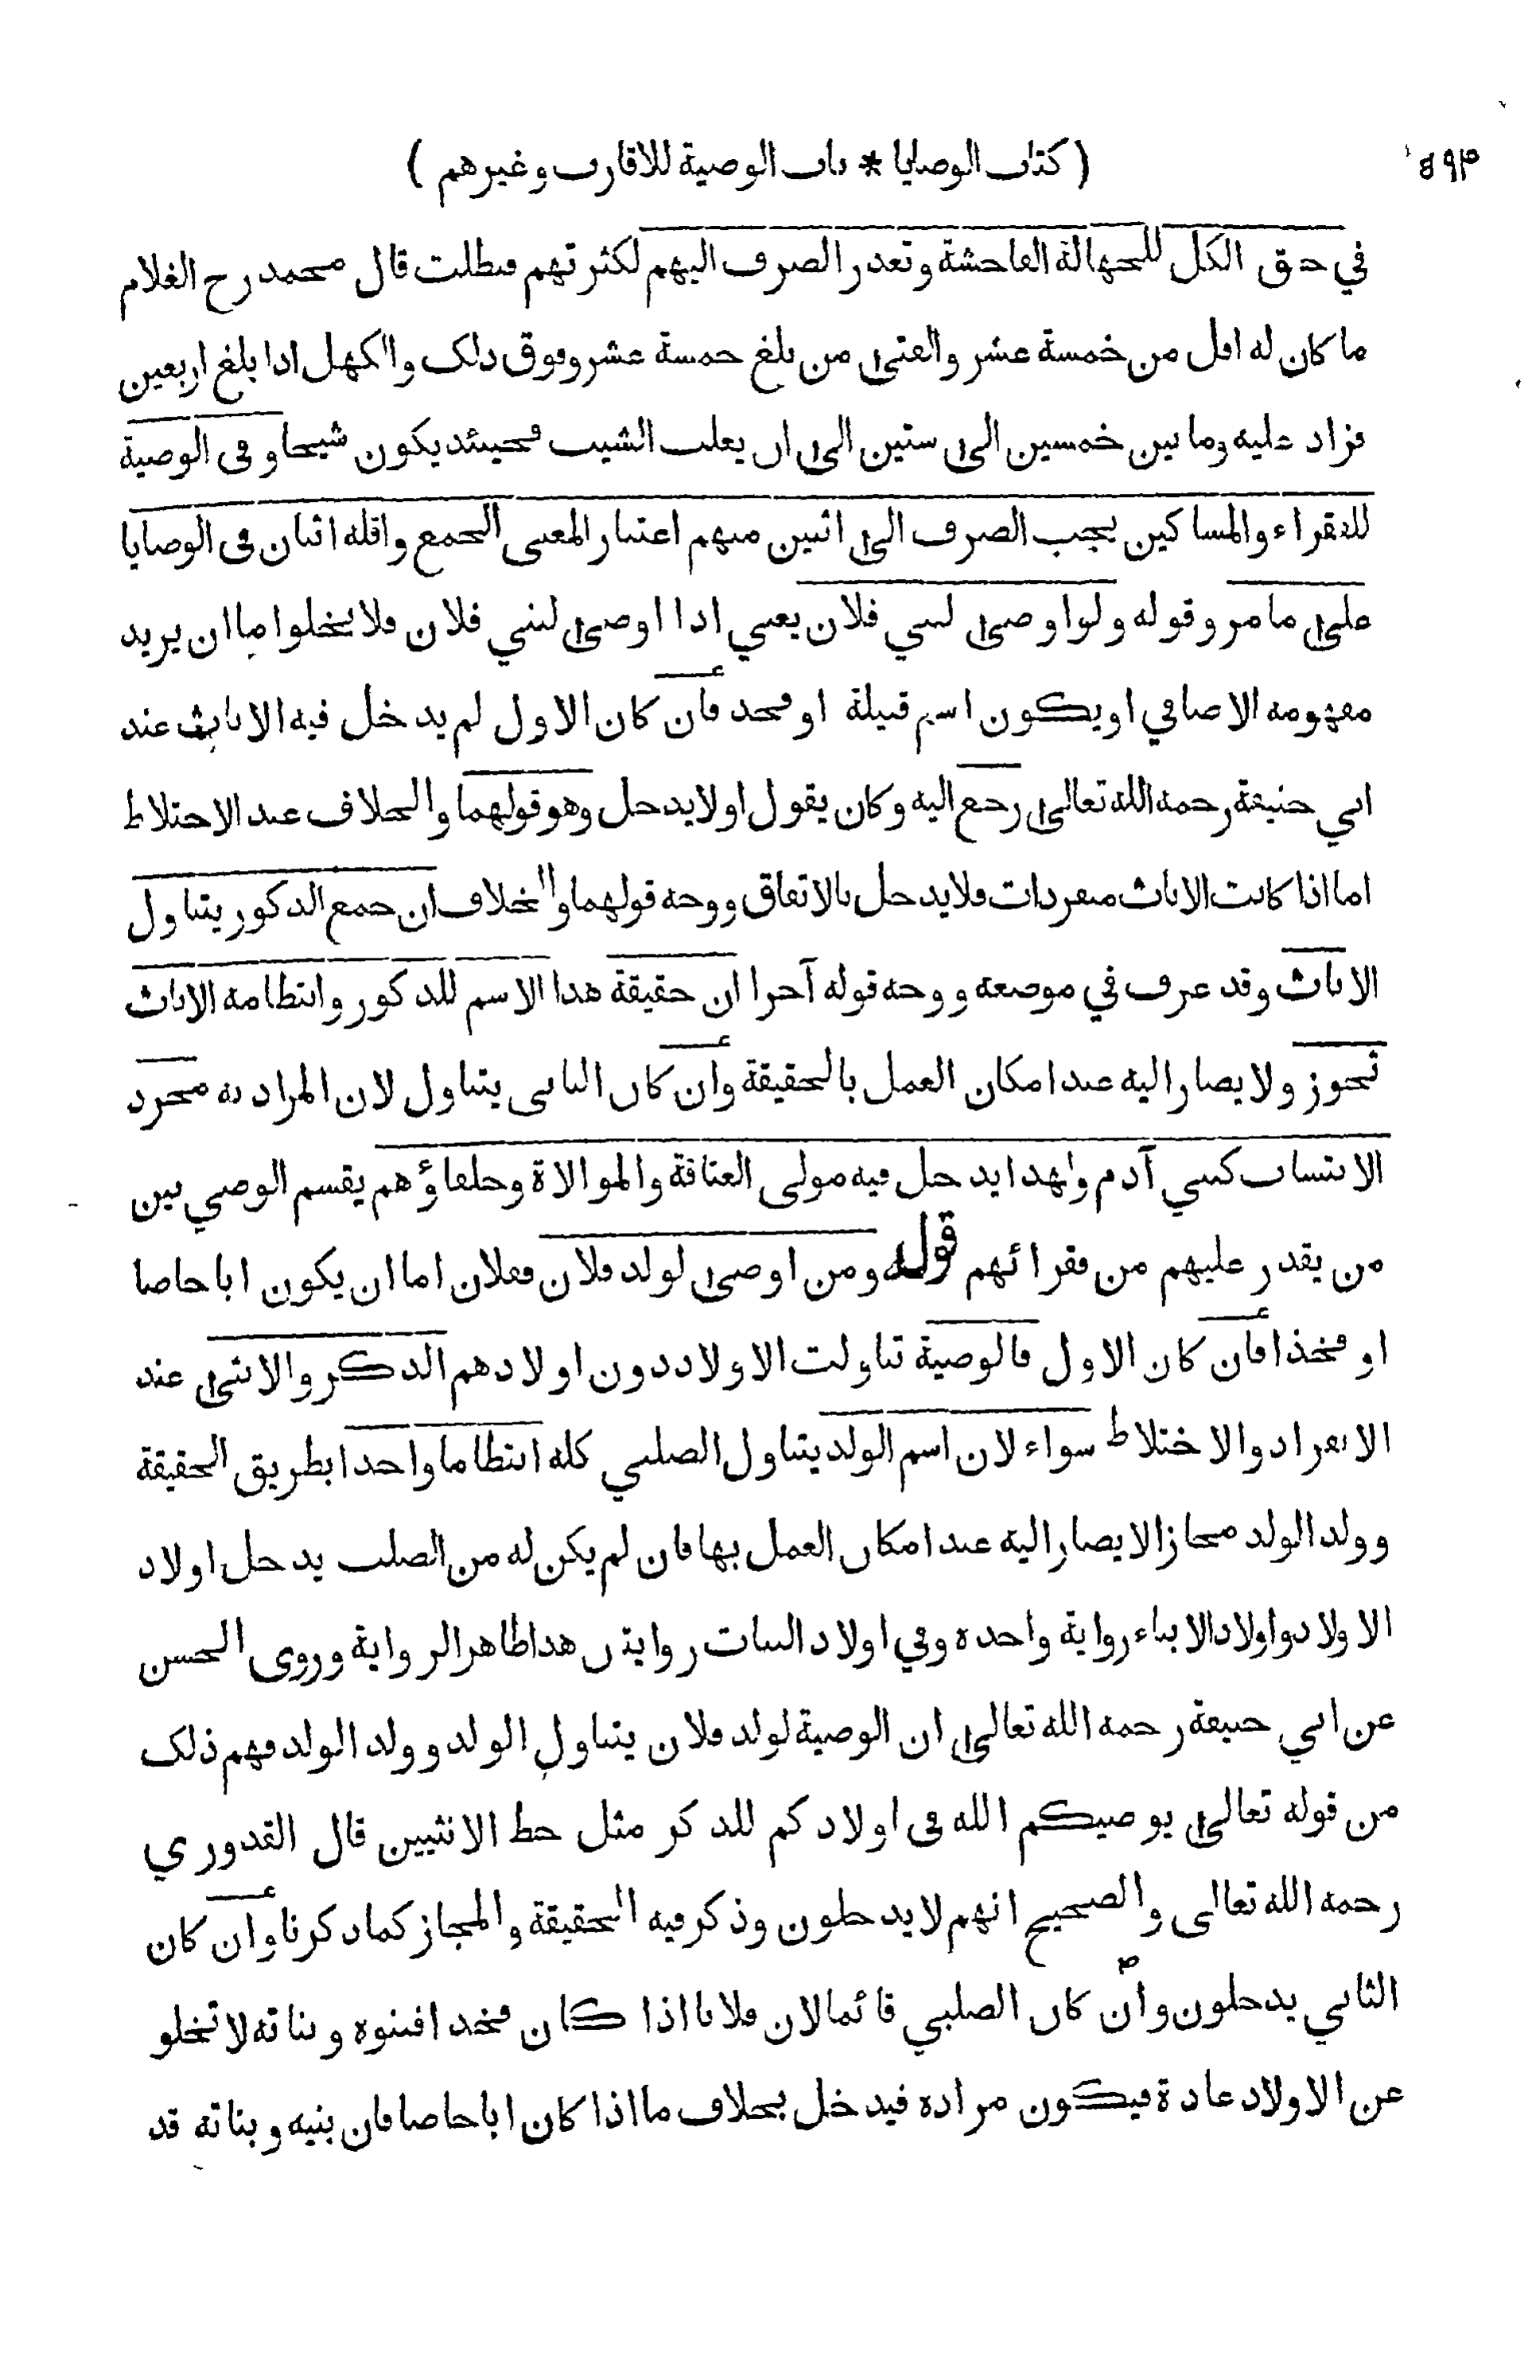 ( كتاب الوصايا * باب الوصية للاقارب وغيرهم )
في حق الكل للجهالة الفاحشة وتعذر الصرف اليهم لكثرتهم فبطلت قال محمد رح الغلام
ما كان له اقل من خمسة عشر والفتى من بلغ خمسة عشر وفوق ذلك والكهل اذا بلغ اربعين
فزاد عليه وما بين خمسين الى ستين الى ان يغلب الشيب فحينئذ يكون شيخا وفى الوصية
للفقراء والمساكين يجب الصرف الى اثنين منهم اعتبار المعنى الجمع واقله اثنان فى الوصايا
على ما مر وقوله ولو اوصى لبني فلان يعني اذا اوصى لبني فلان فلا يخلوا ما ان يريد
مفهومه الاضافي او يكون اسم قبيلة او فخذ فان كان الاول لم يدخل فيه الاناث عند
ابي حنيفة رحمه الله تعالى رجع اليه وكان يقول اولا يدخل وهو قولهما والخلاف عند الاختلاط
اما اذا كانت الاناث منفردات فلا يدخل بالاتفاق ووجه قولهما والخلاف ان جمع الذكور يتناول
الاناث وقد عرف في موضعه ووجه قوله آخرا ان حقيقة هذا الاسم للذكور وانتظامه الاناث
تجوز ولا يصار اليه عند امكان العمل بالحقيقة وان كان الثانى يتناول لان المراد به مجرد
الانتساب كبني آدم ولهذا يدخل فيه مولى العتاقة والموالاة وحلفاؤهم يقسم الوصي بين
من يقدر عليهم من فقرائهم قوله ومن اوصى لولد فلان ففلان اما ان يكون ابا خاصا
او فخذا فان كان الاول فالوصية تناولت الاولاد دون اولادهم الذكر والانثى عند
الانفراد والاختلاط سواء لان اسم الولد يتناول الصلبي كله انتظاما واحدا بطريق الحقيقة
وولد الولد مجاز الا يصار اليه عند امكان العمل بها فان لم يكن له من الصلب يدخل اولاد
الاولاد واولاد الابناء رواية واحدة وفي اولاد البنات روايتان هذا ظاهر الرواية وروى الحسن
عن ابي حنيفة رحمه الله تعالى ان الوصية لولد فلان يتناول الولد وولد الولد فهم ذلك
من قوله تعالى يوصيكم الله فى اولادكم للذكر مثل حظ الانثيين قال القدوري
رحمه الله تعالى والصحيح انهم لا يدخلون وذكر فيه الحقيقة والمجاز كما ذكرنا وان كان
الثاني يدخلون وان كان الصلبي قائما لان فلانا اذا كان فخذا فبنوه وبناته لا تخلو
عن الاولاد عادة فيكون مراده فيدخل بخلاف ما اذا كان ابا خاصا فان بنيه وبناته قد